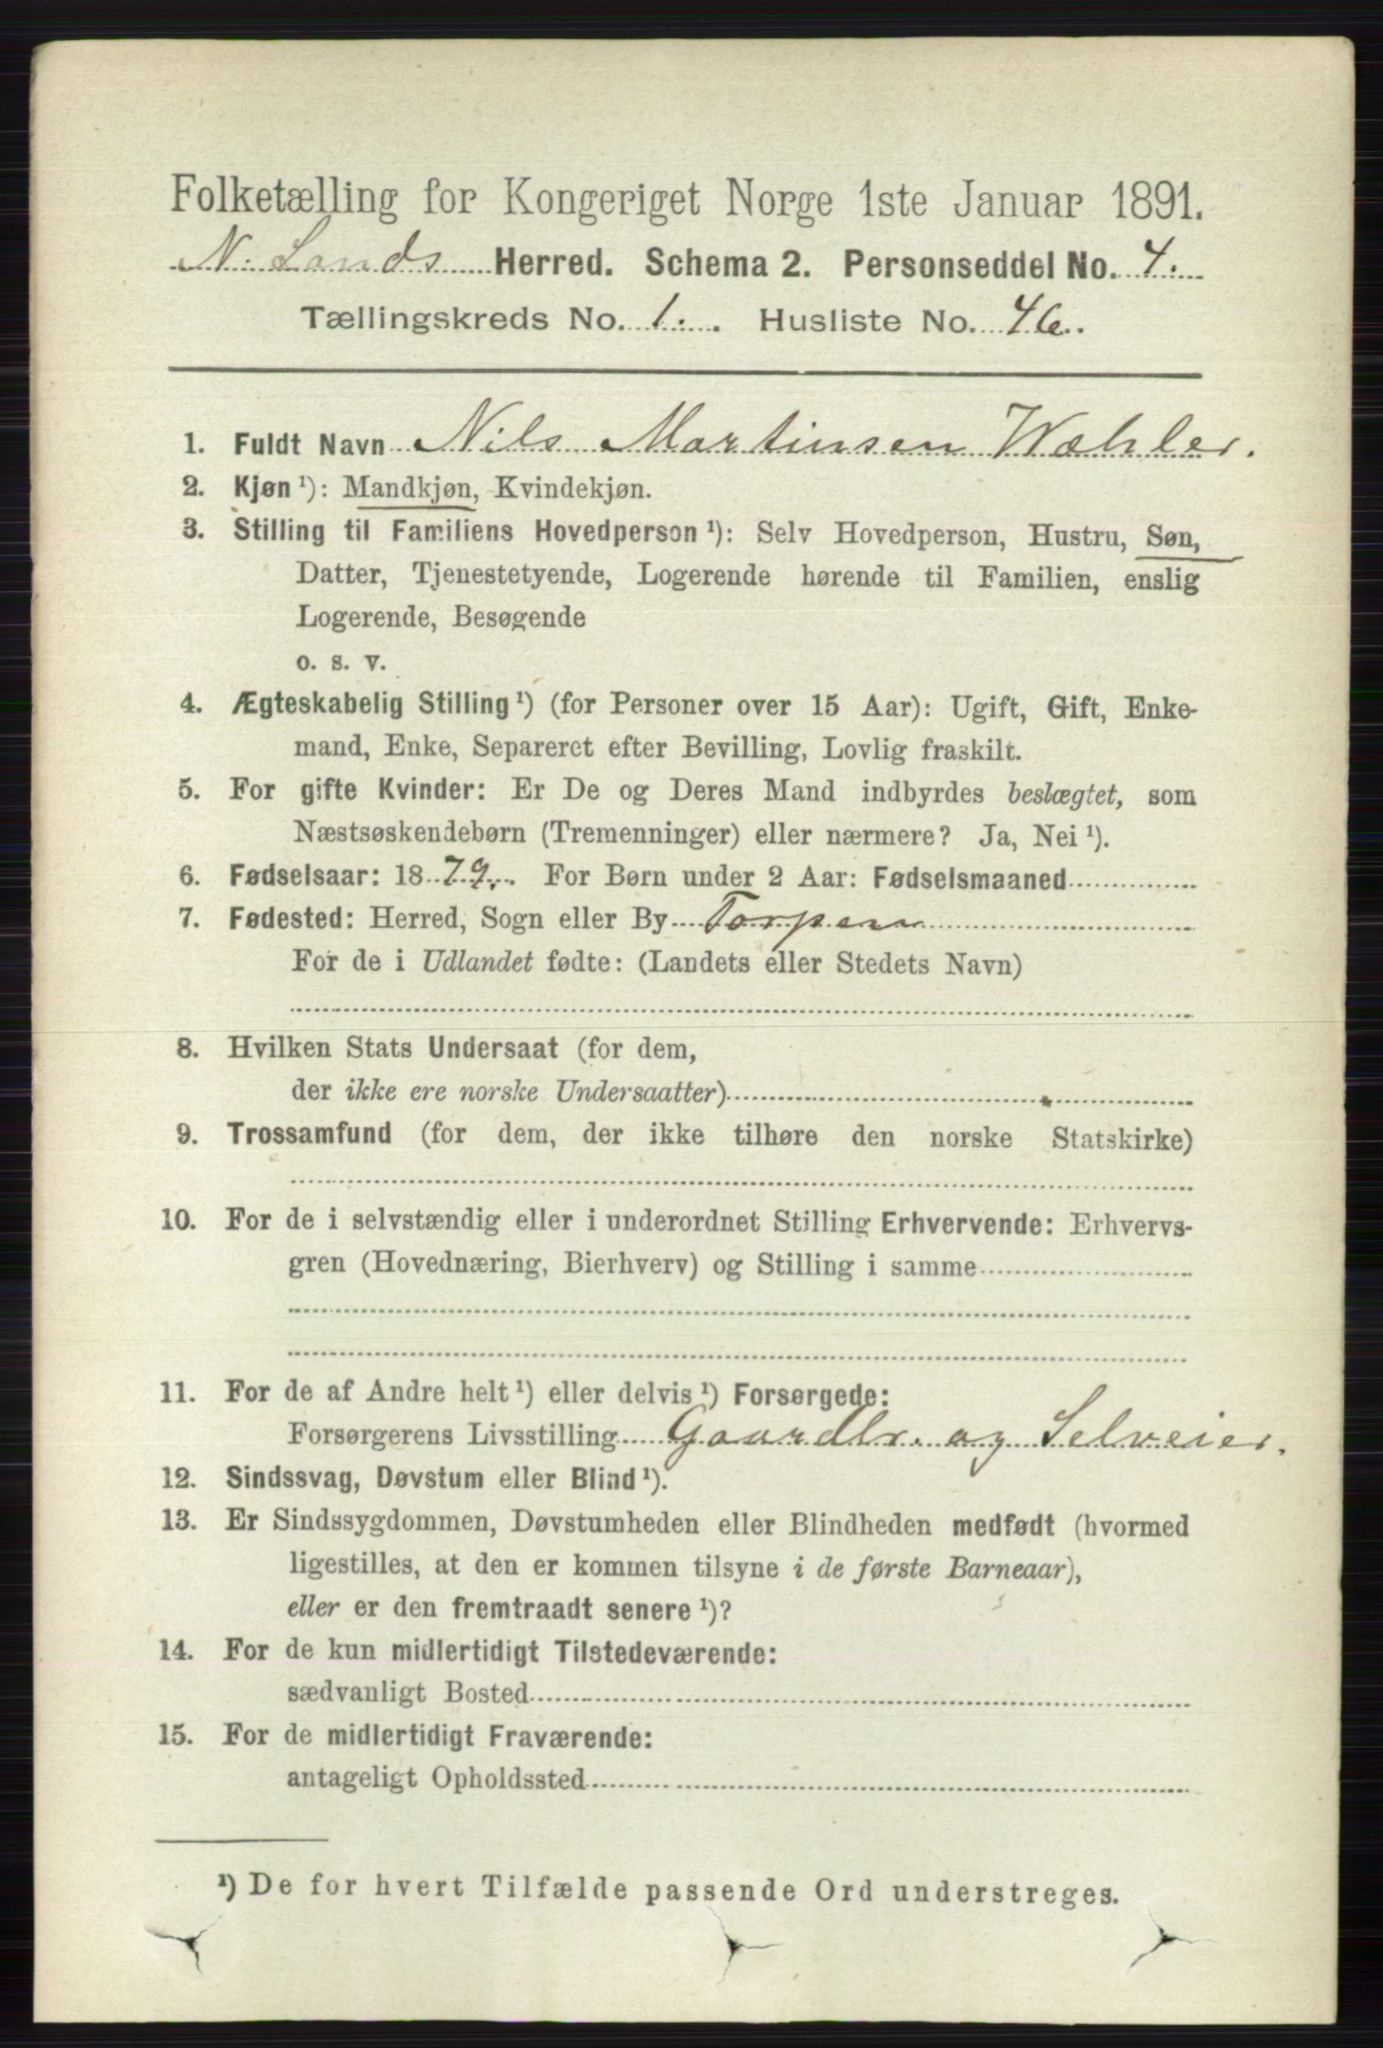 Folketælling for Kongeriget Norge 1ste Januar 1891.
N. Lands Herred. Schema 2. Personseddel No. 4.
Tællingskreds No. 1. Husliste No. 46.
1. Fuldt Navn Nils Martinsen Wæhler.
2. Kjøn ¹): Mandkjøn, Kvindekjøn.
3. Stilling til Familiens Hovedperson ¹): Selv Hovedperson, Hustru, Søn,
Datter, Tjenestetyende, Logerende hørende til Familien, enslig
Logerende, Besøgende
o. s. v.
4. Ægteskabelig Stilling ¹) (for Personer over 15 Aar): Ugift, Gift, Enke-
mand, Enke, Separeret efter Bevilling, Lovlig fraskilt.
5. For gifte Kvinder: Er De og Deres Mand indbyrdes beslægtet, som
Næstsøskendebørn (Tremenninger) eller nærmere? Ja, Nei ¹).
6. Fødselsaar: 1879. For Børn under 2 Aar: Fødselsmaaned
7. Fødested: Herred, Sogn eller By Torpen
For de i Udlandet fødte: (Landets eller Stedets Navn)
8. Hvilken Stats Undersaat (for dem,
der ikke ere norske Undersaatter)
9. Trossamfund (for dem, der ikke tilhøre den norske Statskirke)
10. For de i selvstændig eller i underordnet Stilling Erhvervende: Erhvervs-
gren (Hovednæring, Bierhverv) og Stilling i samme
11. For de af Andre helt ¹) eller delvis ¹) Forsørgede:
Forsørgerens Livsstilling Gaardbr. og Selveier.
12. Sindssvag, Døvstum eller Blind ¹).
13. Er Sindssygdommen, Døvstumheden eller Blindheden medfødt (hvormed
ligestilles, at den er kommen tilsyne i de første Barneaar),
eller er den fremtraadt senere ¹)?
14. For de kun midlertidigt Tilstedeværende:
sædvanligt Bosted
15. For de midlertidigt Fraværende:
antageligt Opholdssted
¹) De for hvert Tilfælde passende Ord understreges.